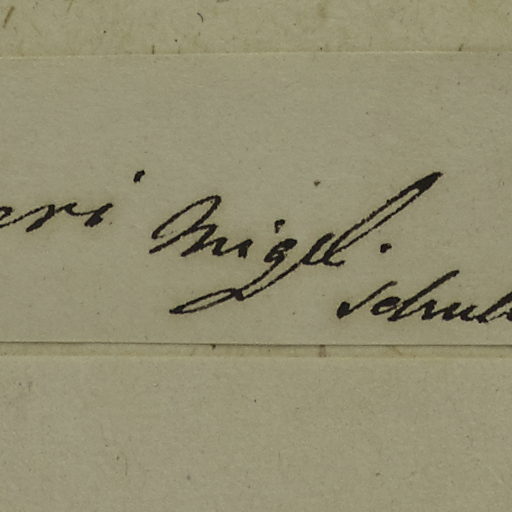 eri Migel.
Schult